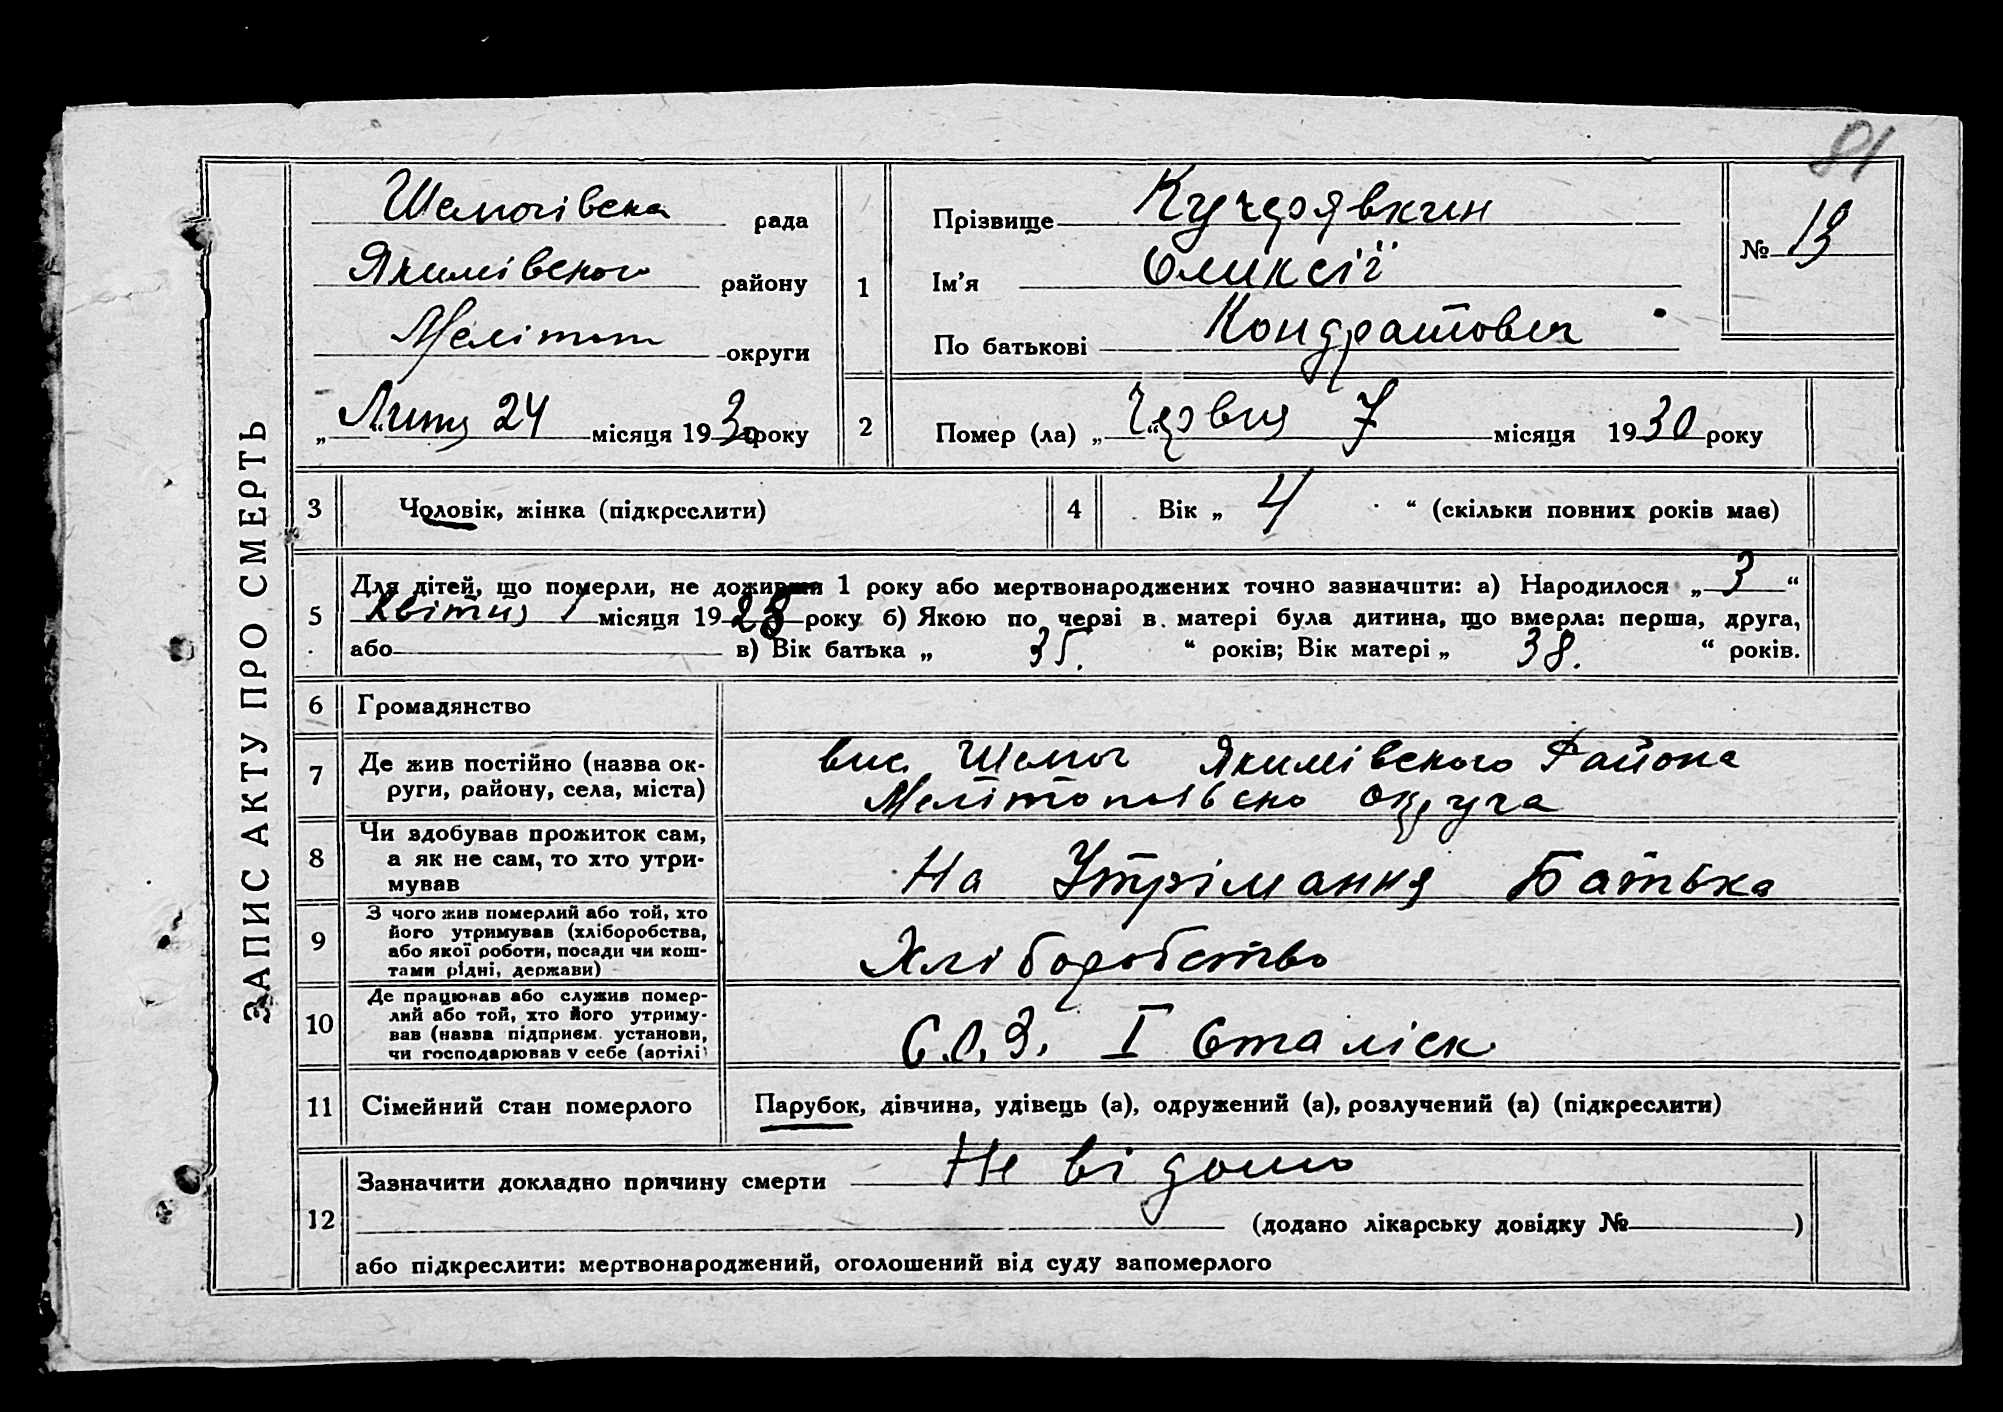 81
ЗАПИС АКТУ ПРО СМЕРТЬ
Шемогівска рада
Якимівского району
Меліт округи
„ Липня 24 “ місяця 1930 року
1
Прізвище Кучерявкин
Ім'я Оликсії
По батькові Кондратович
№ 13
2
Помер (ла) „ Червня 7 “ місяця 1930 року
3 Чоловік, жінка (підкреслити)
4 Вік „ 4 “ (скільки повних років має)
5
Для дітей, що померли, не доживши 1 року або мертвонароджених точно зазначити: а) Народилося „ 3 “
Квітня 1 місяця 1928 року б) Якою по черзі в матері була дитина, що вмерла: перша, друга,
або в) Вік батька „ 35. “ років; Вік матері „ 38. “ років.
6 Громадянство
7 Де жив постійно (назва ок-
руги, району, села, міста)
вис. Шемог Якимівского Района
Мелітопольівско округа
8 Чи здобував прожиток сам,
а як не сам, то хто утри-
мував
На Утрімання Батька
9 З чого жив померлий або той, хто
його утримував (хліборобства,
або якої роботи, посади чи кош-
тами рідні, держави)
Хліборобство
10 Де працював або служив помер-
лий або той, хто його утриму-
вав (назва підприєм. установи,
чи господарював у себе (артілі)
С.О.З. I
11 Сімейний стан померлого
Парубок, дівчина, удівець (а), одружений (а), розлучений (а) (підкреслити)
12
Зазначити докладно причину смерти Не відомо
(додано лікарську довідку № )
або підкреслити: мертвонароджений, оголошений від суду запомерлого